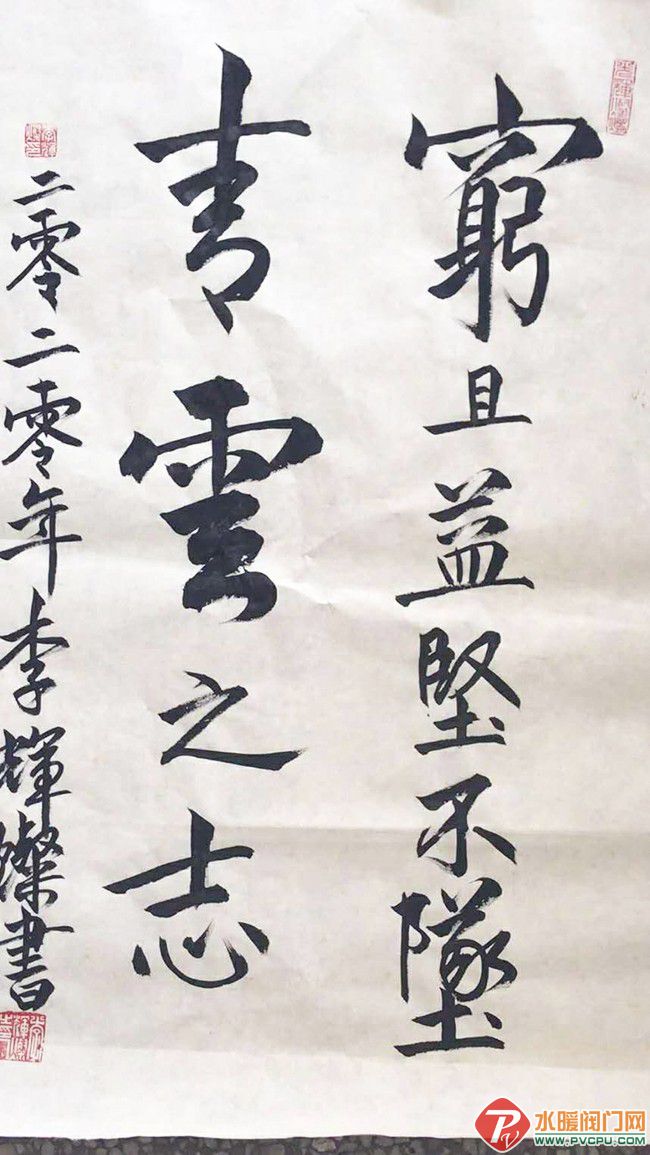 窮且益堅不墜
青雲之志
二零二零年李輝燦書
水暖阀门网
WWW.PVCPU.COM